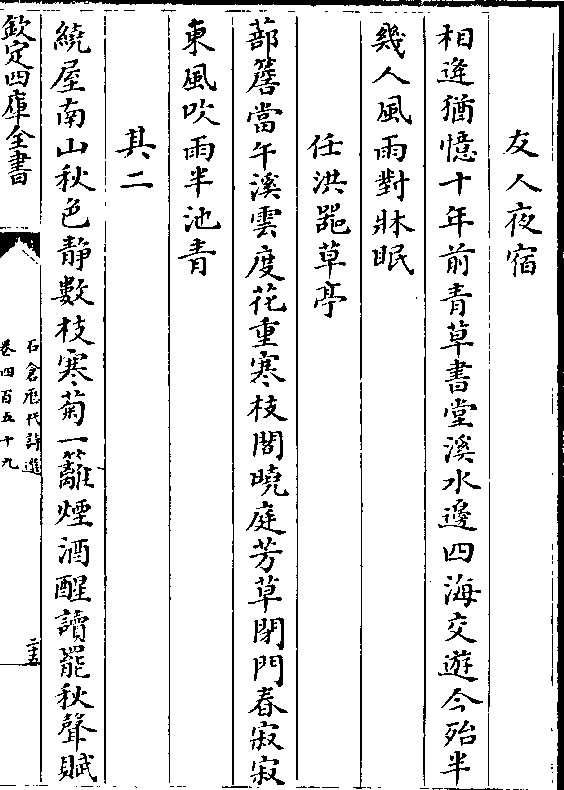 友人夜宿
相逢猶憶十年前青草書堂溪水邊四海交遊今殆半
幾人風雨對牀眠
任洪噐草亭
蔀簷當午溪雲度花重寒枝閣曉庭芳草閉門春寂寂
東風吹雨半池青
其二
繞屋南山秋色静數枝寒菊一籬煙酒醒讀罷秋聲賦
欽定四庫全書
石倉歷代詩選
卷四百五十九